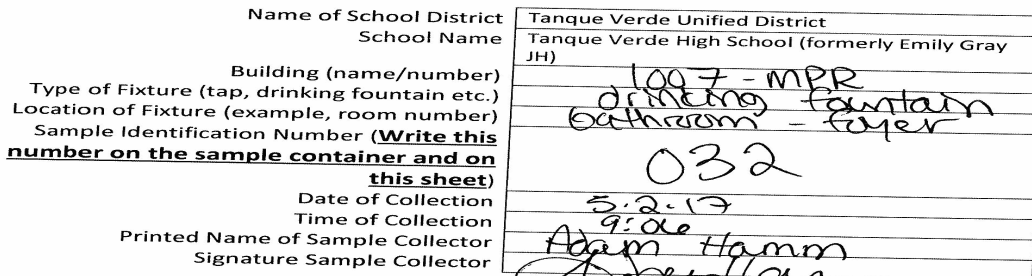 Name of School District Tanque Verde Unified District
School Name Tanque Verde High School (formerly Emily Gray
JH)
Building (name/number) 1007 - MPR
Type of Fixture (tap, drinking fountain etc.) drinking fountain
Location of Fixture (example, room number) bathroom - foyer
Sample Identification Number (Write this
number on the sample container and on
this sheet) 032
Date of Collection 5.2.17
Time of Collection 9:06
Printed Name of Sample Collector Adam Hamm
Signature Sample Collector